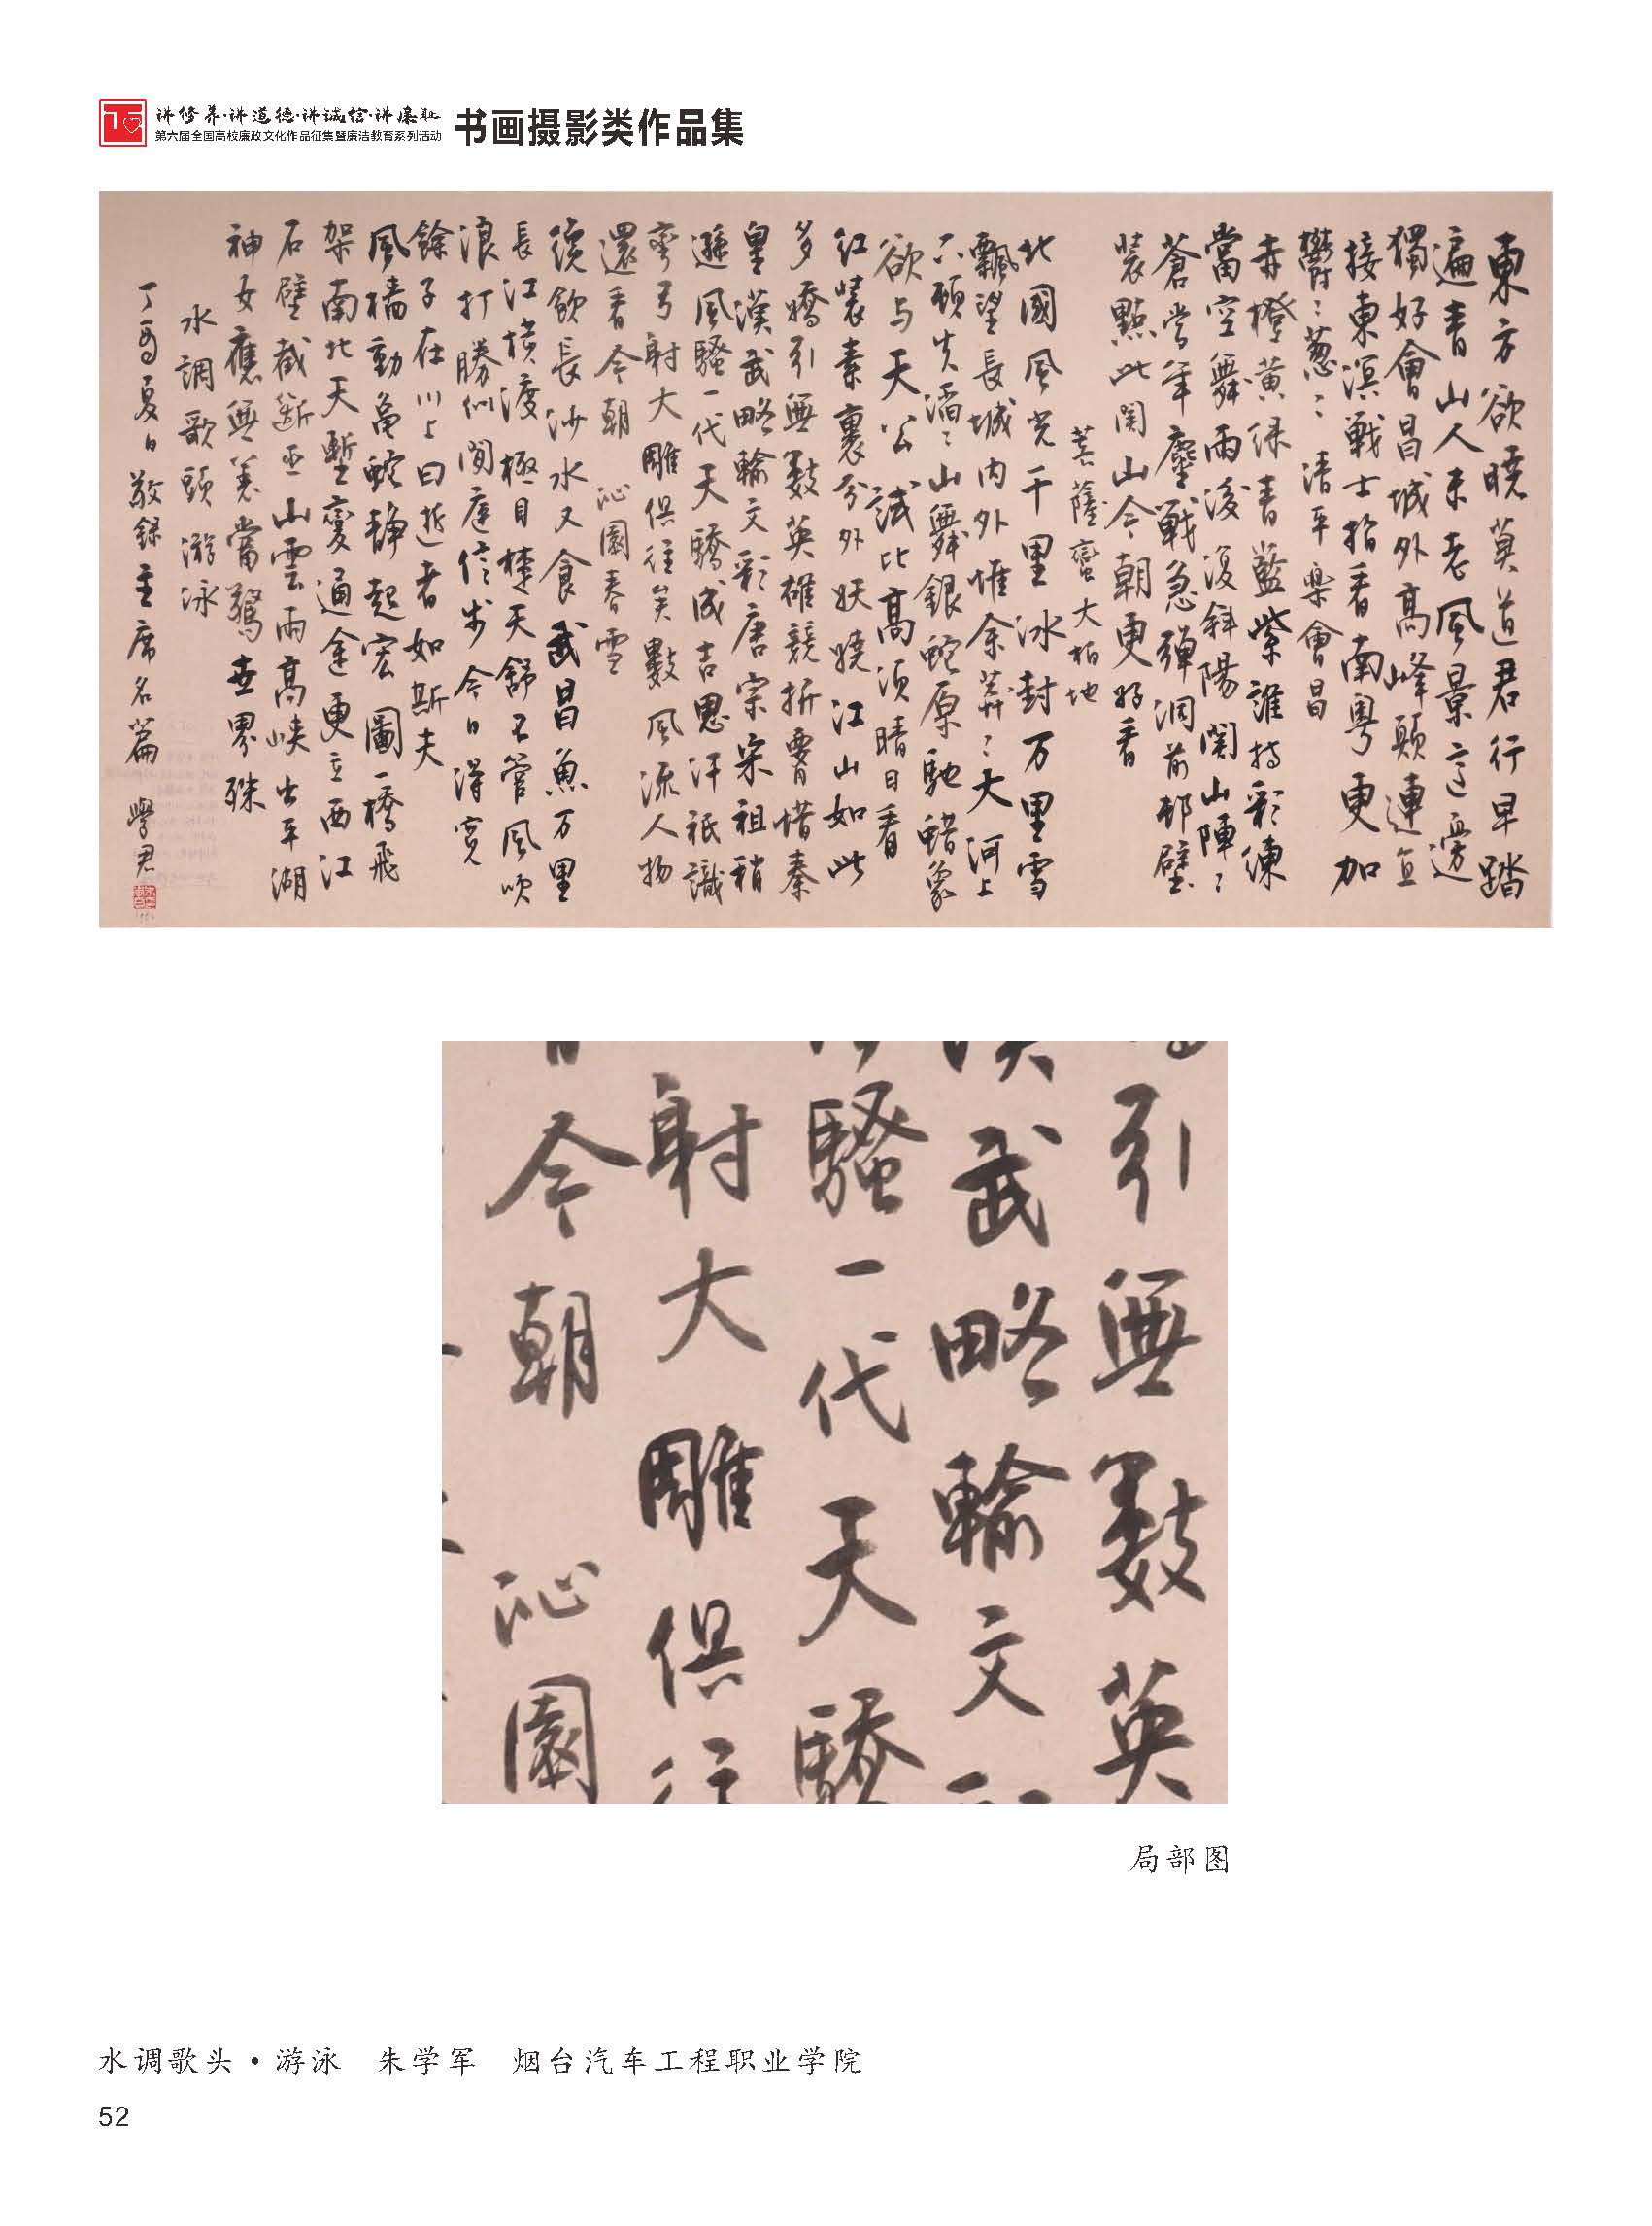 讲修养·讲道德·讲诚信·讲廉耻
第六届全国高校廉政文化作品征集暨廉洁教育系列活动
书画摄影类作品集
東方欲曉莫道君行早踏
遍青山人未老風景這邊
獨好會昌城外高峰顛連直
接東溟戰士指看南粵更加
鬱〻葱〻 清平樂會昌
赤橙黃綠青藍紫誰持彩練
當空舞雨後復斜陽關山陣〻
蒼當年鏖戰急彈洞前邨壁
裝點此関山今朝更好看
菩薩蠻大柏地
北國風光千里冰封万里雪
飄望長城内外惟余莽〻大河上
下頓失滔〻山舞銀蛇原馳蠟象
欲与天公試比高須晴日看
红裝素裹分外妖嬈江山如此
多嬌引無數英雄競折腰惜秦
皇漢武略輸文彩唐宗宋祖稍
遜風騷一代天驕成吉思汗祇識
彎弓射大雕俱往矣數風流人物
還看今朝 沁園春雪
纔飲長沙水又食武昌魚万里
長江橫渡極目楚天舒不管風吹
浪打勝似閒庭信步今日得寬
餘子在川上曰逝者如斯夫
風檣動龟蛇静起宏圖一橋飛
架南北天塹變通途更立西江
石壁截斷巫山雲雨高峡出平湖
神女應無恙當驚世界殊
水調歌頭 游泳
丁酉夏日敬録主席名篇 學君
今朝沁園
射大雕俱往
騷一代天驕
漢武略輸文
引無數英
局部图
水调歌头·游泳 朱学军 烟台汽车工程职业学院
52